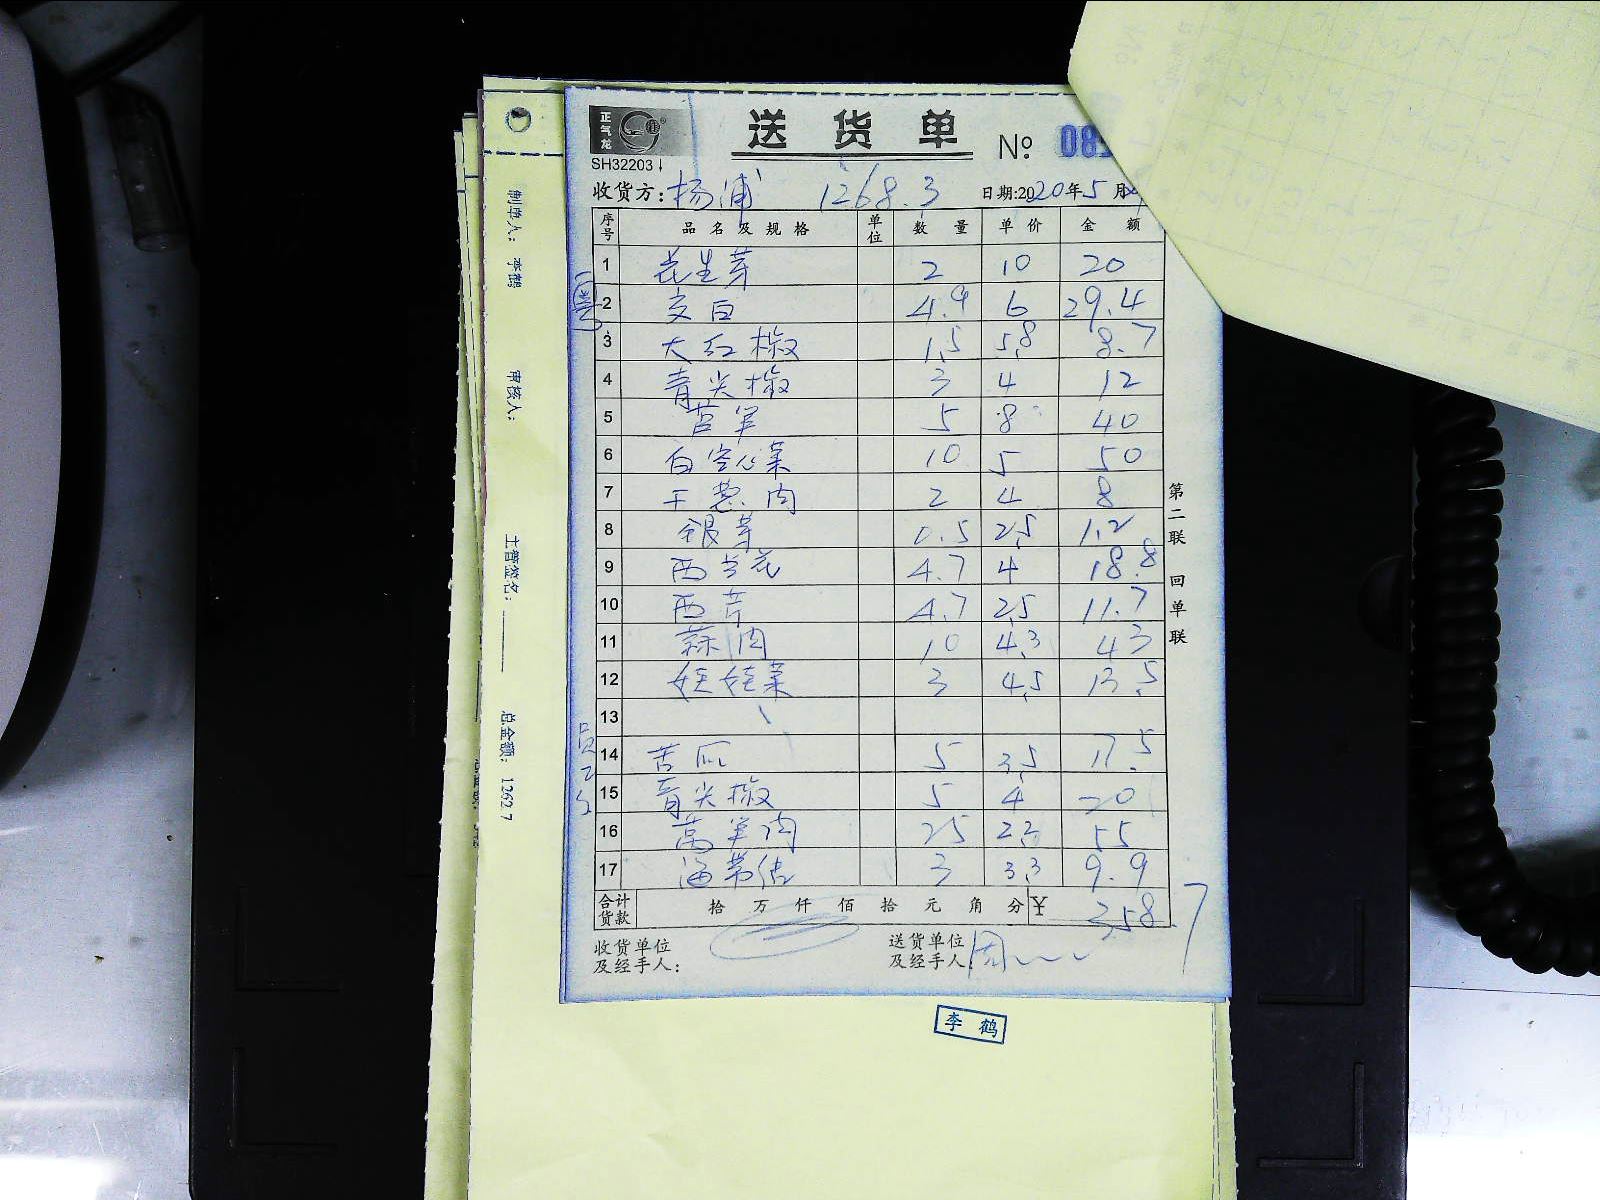 正气龙
送货单
SH32203
№ 080
收货方: 杨浦 1268.3 日期:2020年5月
序号 品名及规格 单位 数量 单价 金额
1 花生芽 2 10 20
2 交白 4.9 6 29.4
3 大红椒 1.5 5.8 8.7
4 青尖椒 3 4 12
5 莴笋 5 8 40
6 白空心菜 10 5 50
7 干葱肉 2 4 8
8 银芽 0.5 2.5 1.2
9 西兰花 4.7 4 18.8
10 西芹 4.7 2.5 11.7
11 蒜肉 10 4.3 43
12 娃娃菜 3 4.5 13.5
13
14 苦瓜 5 3.5 17.5
15 青尖椒 5 4 20
16 莴笋肉 25 2.2 55
17 海带结 3 3.3 9.9
合计货款 拾 万 仟 佰 拾 元 角 分 ¥ 358.7
收货单位及经手人:
送货单位及经手人: 周
第二联 回单联
员工
制单人: 李鹤 审核人: 主管签名: 总金额: 1262.7
李鹤